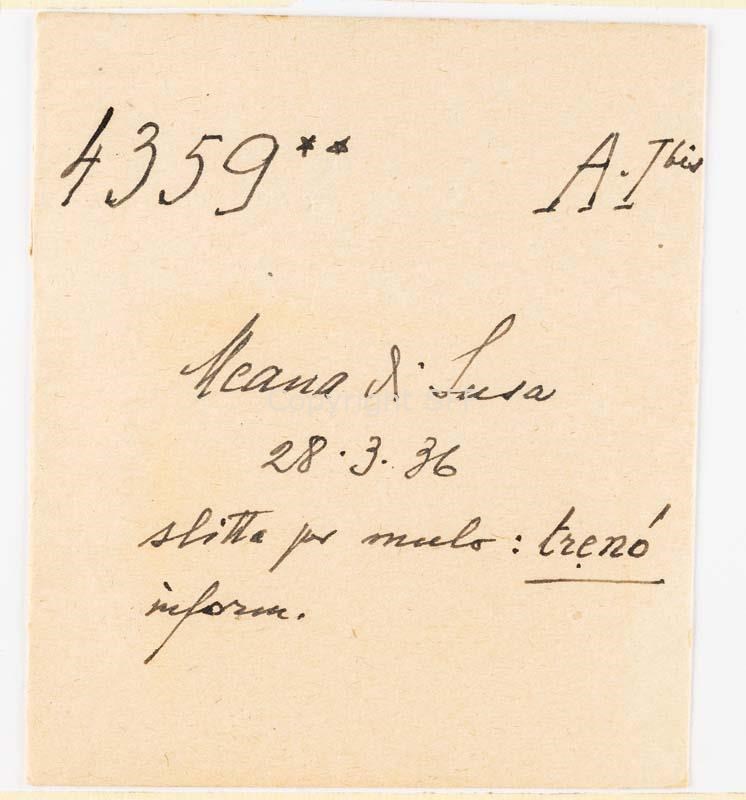 4359** A.I bis
Meana di Susa
28.3.36
slitta per mulo: trẹnó
inform.